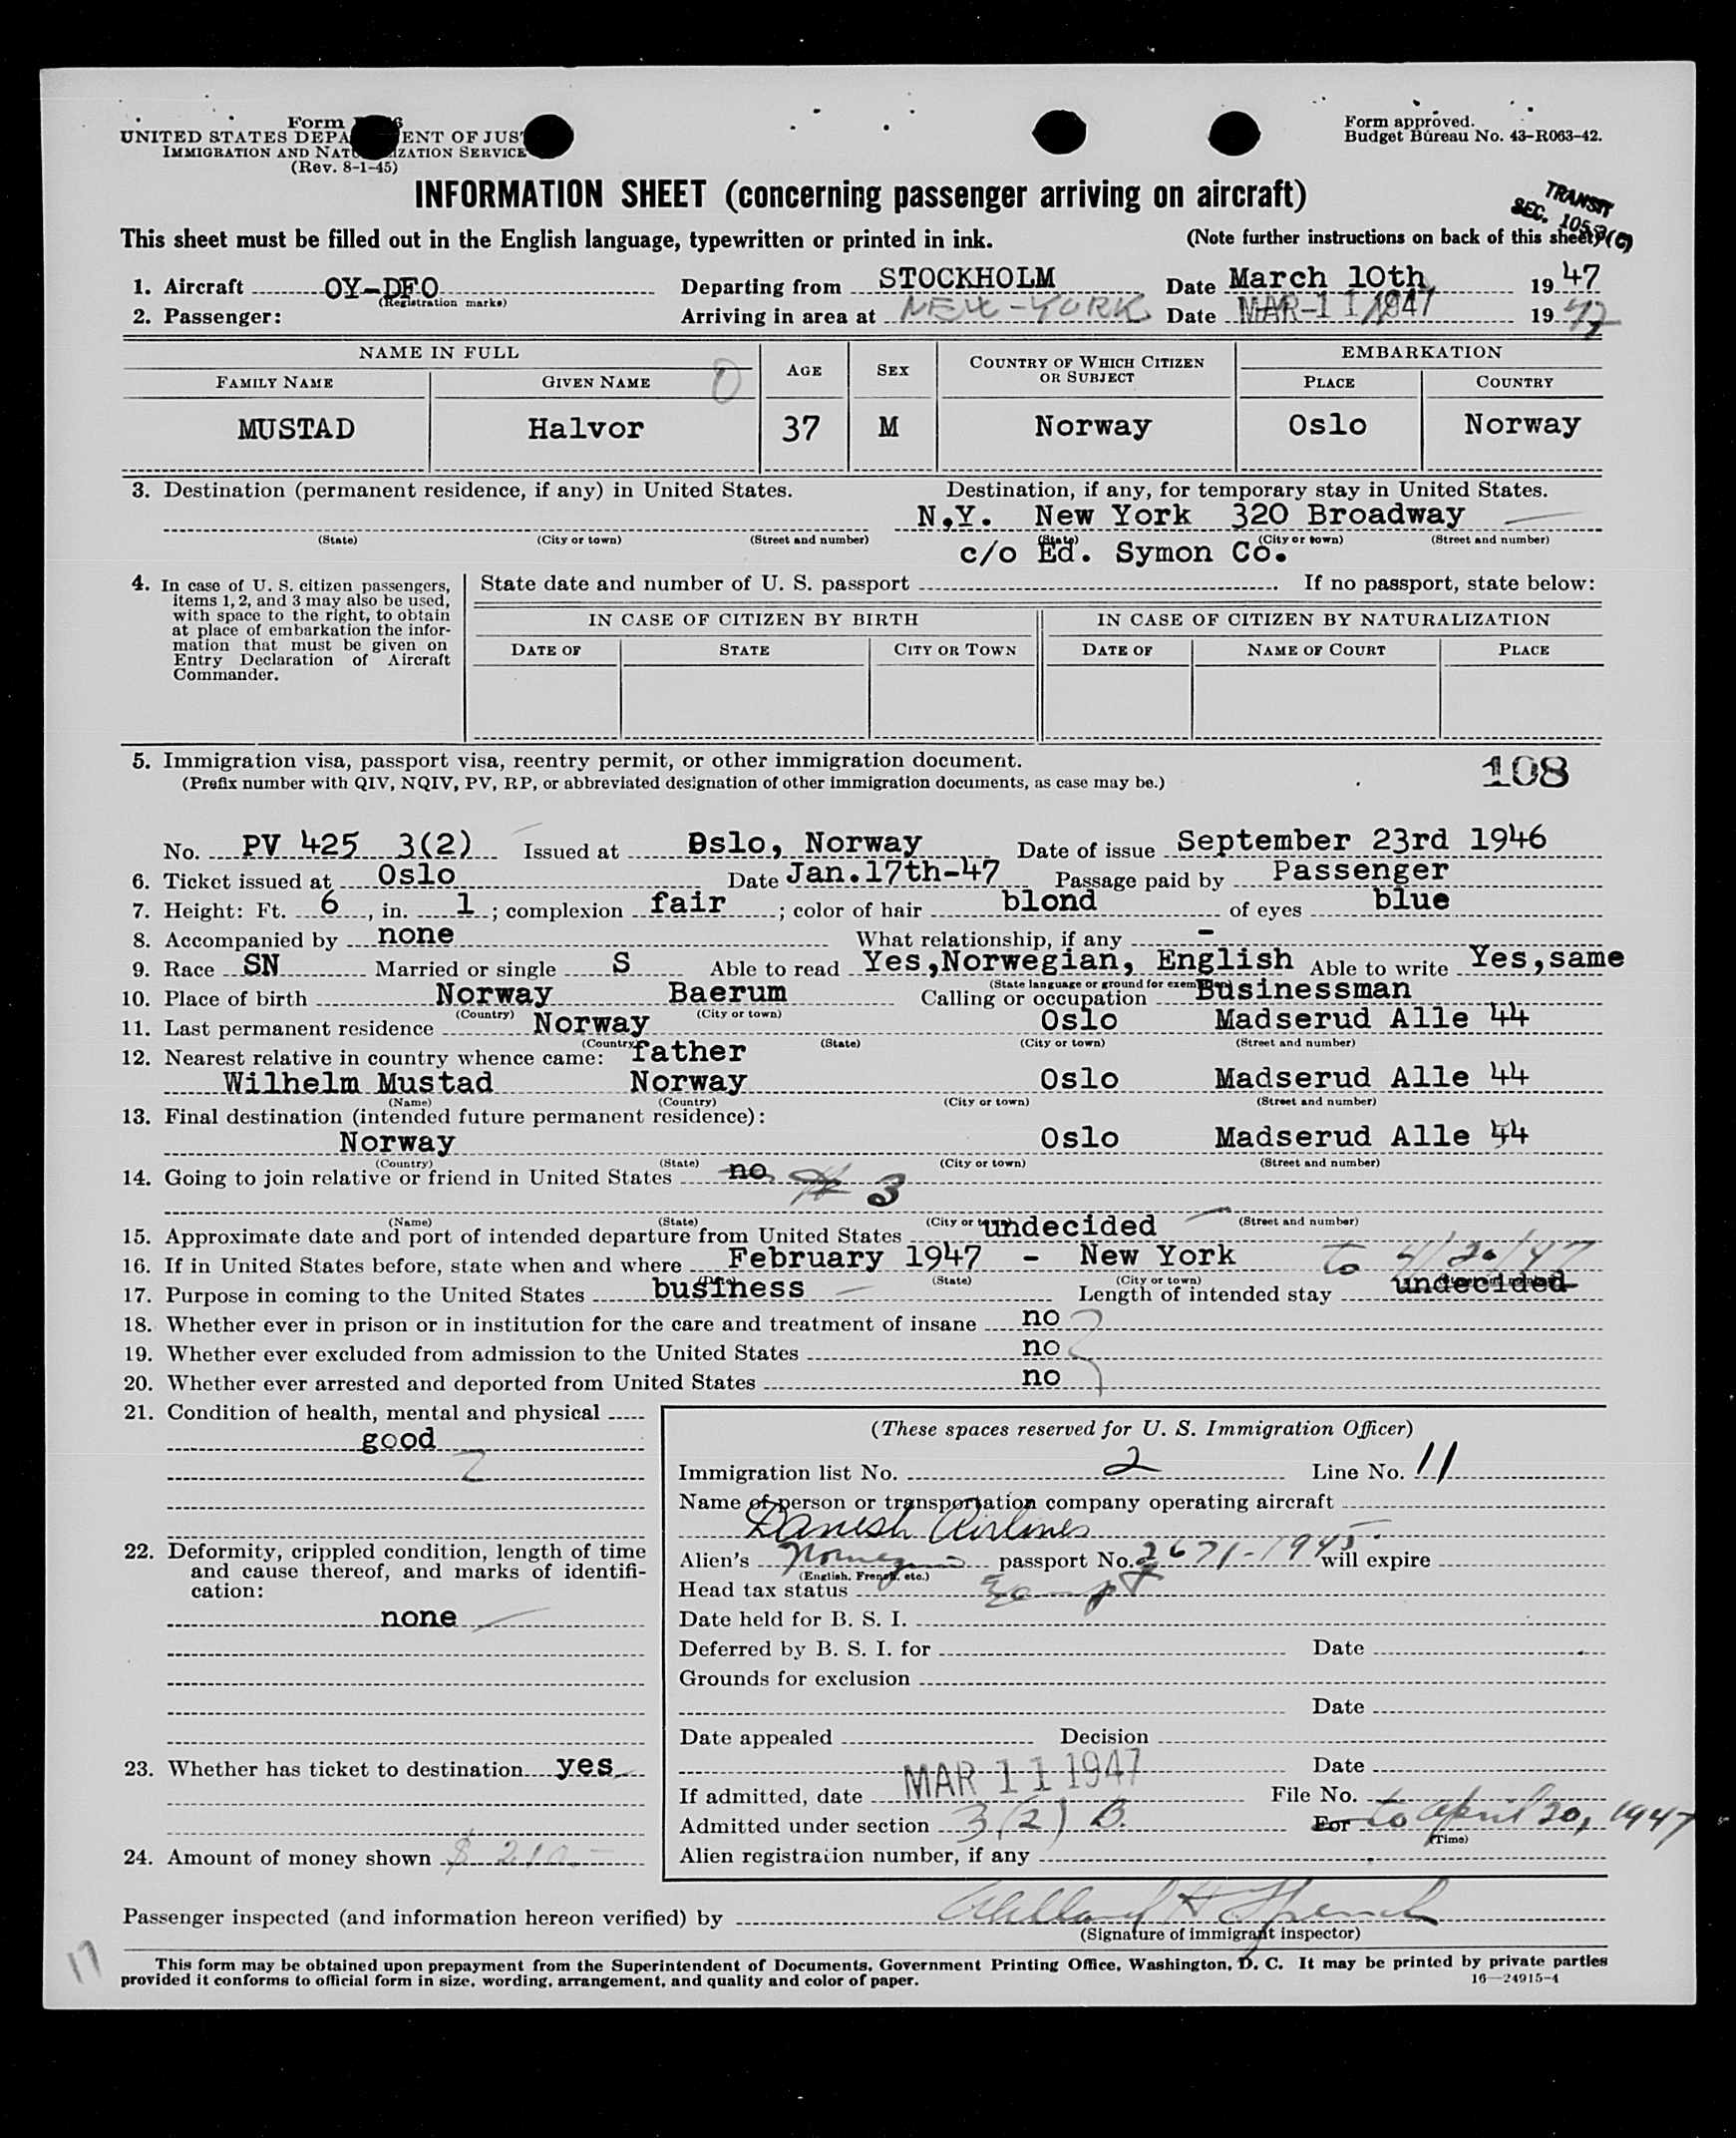 Form
UNITED STATES DEPA ENT OF JUS
IMMIGRATION AND NATU IZATION SERVICE
(Rev. 8-1-45)
Form approved.
Budget Bureau No. 43-R063-42.
INFORMATION SHEET (concerning passenger arriving on aircraft)
TRANSIT
SEC.
This sheet must be filled out in the English language, typewritten or printed in ink. (Note further instructions on back of this sheet)
1. Aircraft OY-DFO Departing from STOCKHOLM Date March 10th, 1947
(Registration marks)
2. Passenger: Arriving in area at NEW-YORK Date MAR 11 1947 1947
NAME IN FULL AGE SEX COUNTRY OF WHICH CITIZEN OR SUBJECT EMBARKATION
FAMILY NAME GIVEN NAME PLACE COUNTRY
MUSTAD Halvor 37 M Norway Oslo Norway
3. Destination (permanent residence, if any) in United States. Destination, if any, for temporary stay in United States.
N.Y. New York 320 Broadway
(State) (City or town) (Street and number) (State) (City or town) (Street and number)
c/o Ed. Symon Co.
4. In case of U. S. citizen passengers, items 1, 2, and 3 may also be used, with space to the right, to obtain at place of embarkation the information that must be given on Entry Declaration of Aircraft Commander.
State date and number of U. S. passport If no passport, state below:
IN CASE OF CITIZEN BY BIRTH IN CASE OF CITIZEN BY NATURALIZATION
DATE OF STATE CITY OR TOWN DATE OF NAME OF COURT PLACE
5. Immigration visa, passport visa, reentry permit, or other immigration document.
(Prefix number with QIV, NQIV, PV, RP, or abbreviated designation of other immigration documents, as case may be.)
108
No. PV 425 3(2) Issued at Oslo, Norway Date of issue September 23rd 1946
6. Ticket issued at Oslo Date Jan.17th-47 Passage paid by Passenger
7. Height: Ft. 6, in. 1; complexion fair; color of hair blond of eyes blue
8. Accompanied by none What relationship, if any -
9. Race SN Married or single S Able to read Yes,Norwegian, English Able to write Yes,same
(State language or ground for exemption)
10. Place of birth Norway Baerum Calling or occupation Businessman
(Country) (City or town)
11. Last permanent residence Norway Oslo Madserud Alle 44
(Country) (State) (City or town) (Street and number)
12. Nearest relative in country whence came: father
Wilhelm Mustad Norway Oslo Madserud Alle 44
(Name) (Country) (City or town) (Street and number)
13. Final destination (intended future permanent residence):
Norway Oslo Madserud Alle 44
(Country) (State) (City or town) (Street and number)
14. Going to join relative or friend in United States no 3
(Name) (State) (City or town) (Street and number)
15. Approximate date and port of intended departure from United States undecided
16. If in United States before, state when and where February 1947 - New York to 4/20/47
(Date) (State) (City or town)
17. Purpose in coming to the United States business Length of intended stay undecided
18. Whether ever in prison or in institution for the care and treatment of insane no
19. Whether ever excluded from admission to the United States no
20. Whether ever arrested and deported from United States no
21. Condition of health, mental and physical
good
22. Deformity, crippled condition, length of time and cause thereof, and marks of identification:
none
23. Whether has ticket to destination yes
24. Amount of money shown
(These spaces reserved for U. S. Immigration Officer)
Immigration list No. 2 Line No. 11
Name of person or transportation company operating aircraft
Danish Airlines
Alien's Norwegian passport No. 2671-1945 will expire
(English, French, etc.)
Head tax status Exempt
Date held for B. S. I.
Deferred by B. S. I. for Date
Grounds for exclusion
Date
Date appealed Decision
Date
If admitted, date MAR 11 1947 File No.
Admitted under section 3(2) B. For to April 20, 1947
(Time)
Alien registration number, if any
Passenger inspected (and information hereon verified) by
(Signature of immigrant inspector)
17
This form may be obtained upon prepayment from the Superintendent of Documents, Government Printing Office, Washington, D. C. It may be printed by private parties
provided it conforms to official form in size, wording, arrangement, and quality and color of paper.
16—24915-4